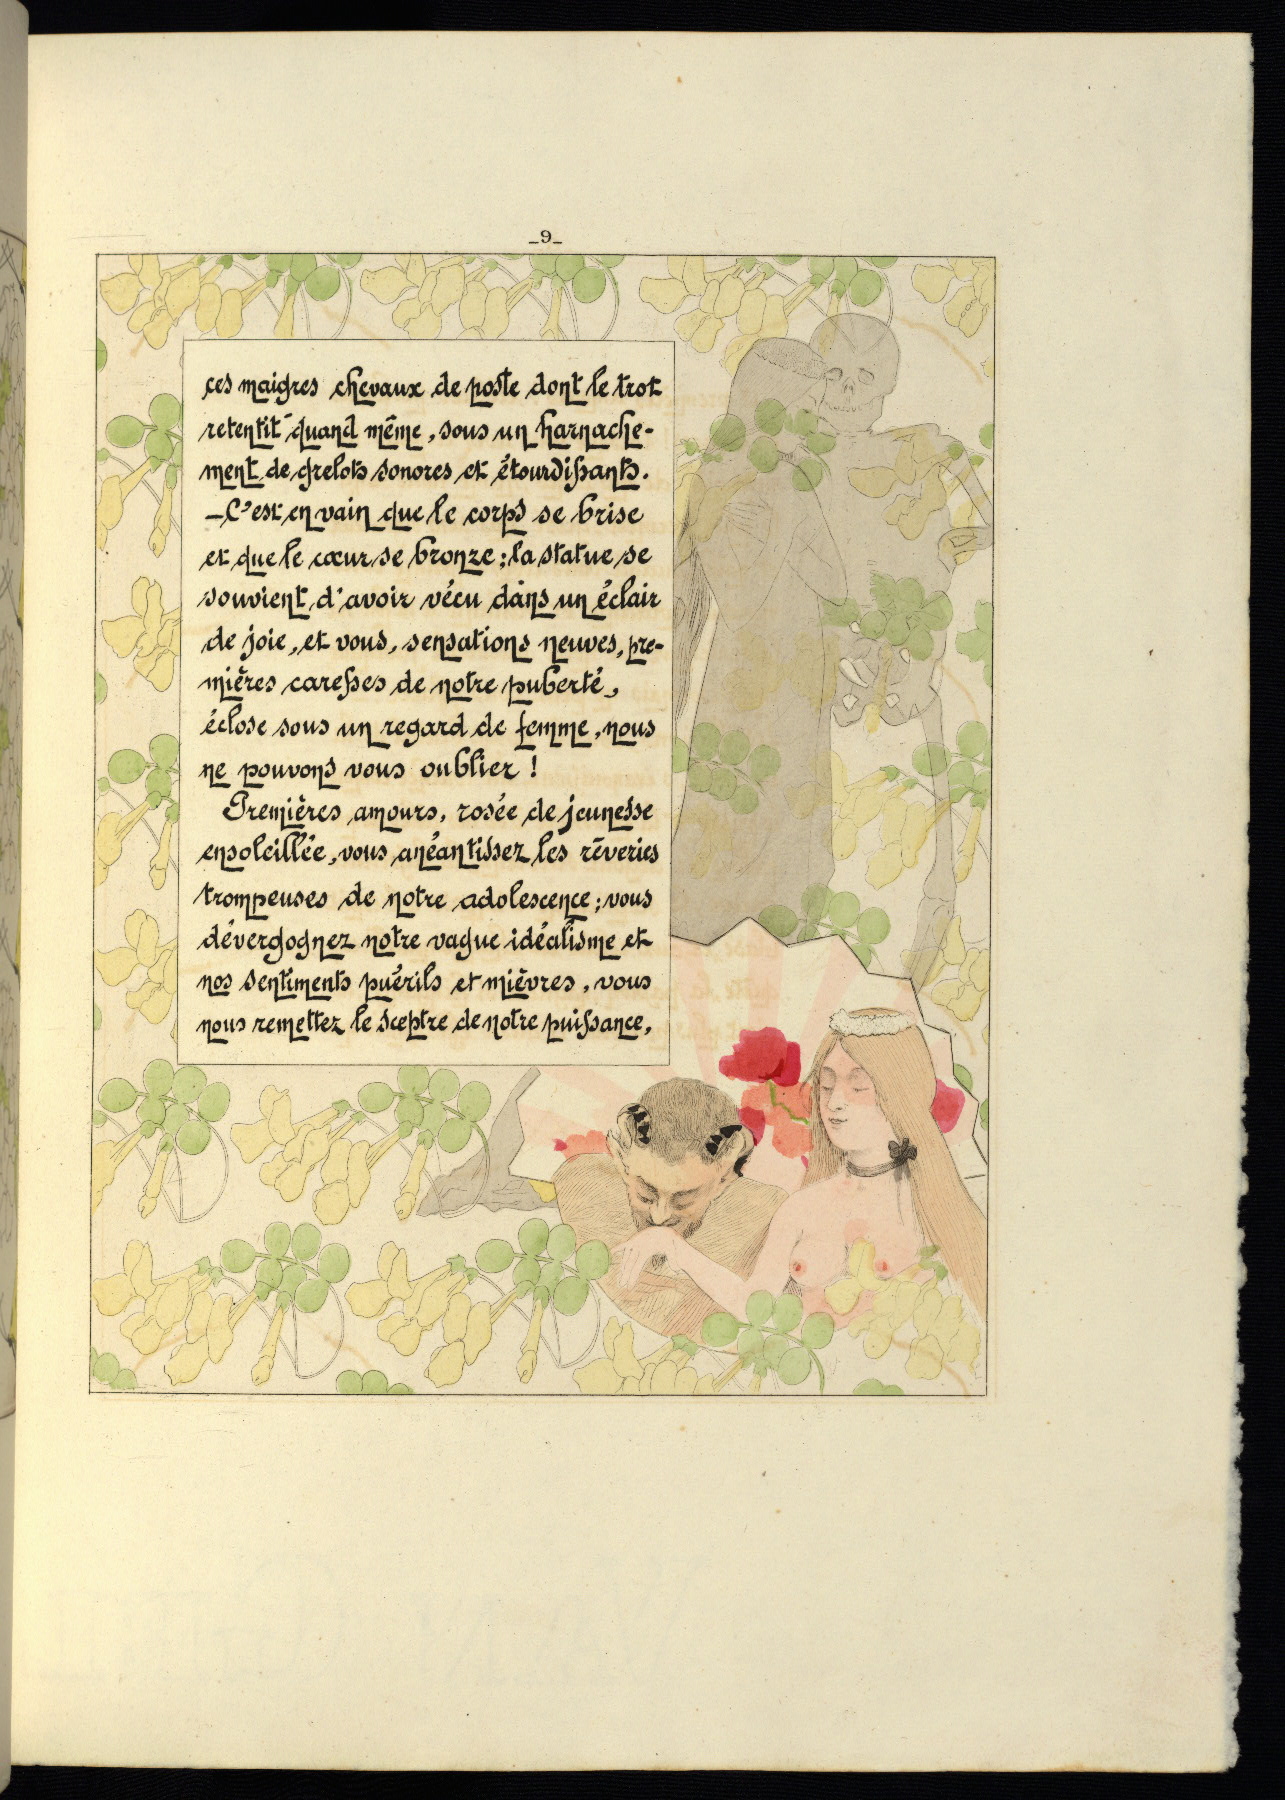 _9_
ces maigres chevaux de poste dont le trot
retentit quand même, sous un harnache-
ment de grelots sonores et étourdissants.
_C'est en vain que le corps se brise
et que le cœur se bronze; la statue se
souvient d'avoir vécu dans un éclair
de joie, et vous, sensations neuves, pre-
mières caresses de notre puberté,
éclose sous un regard de femme, nous
ne pouvons vous oublier !
Premières amours, rosée de jeunesse
ensoleillée, vous anéantissez les rêveries
trompeuses de notre adolescence; vous
dévergognez notre vague idéalisme et
nos sentiments puérils et mièvres, vous
nous remettez le sceptre de notre puissance,